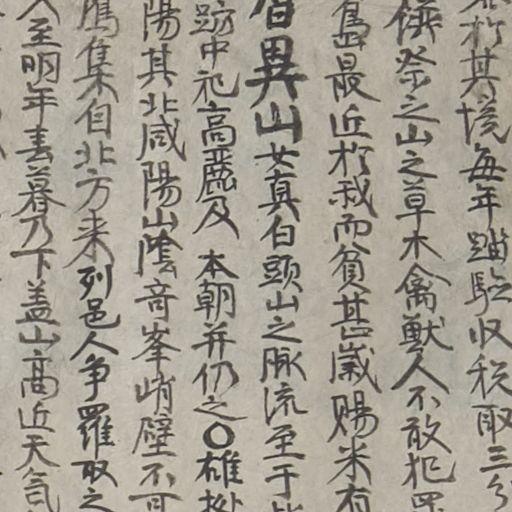 於其境每年踏驗收稅取三分
儺祭之山之草木禽獸人不敢犯
島最近於我而貧甚歲賜米有
智異山女真白頭山之脉流至于
蹟中祀高麗及 本朝并仍之○雄
陽其北咸陽山陰奇峯峭壁不可
鴈集自北方来列邑人争羅取之
至明年春暮乃下盖山高近天氣